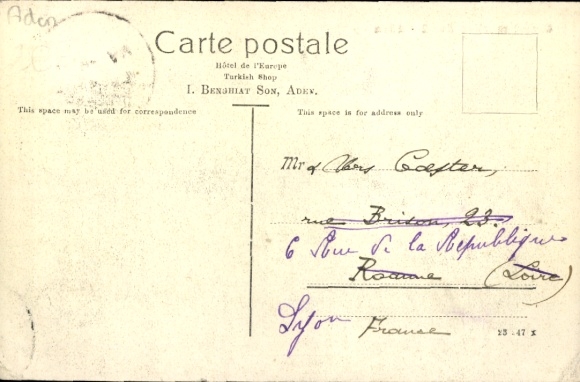 Aden
Carte postale
Hôtel de l'Europe
Turkish Shop
I. Benghiat Son, Aden.
This space may be used for correspondence
This space is for address only
Mr & Mrs Caster,
rue Brison, 23.
6 Rue de la République
Roanne (Loire)
Lyon France
23-47 x